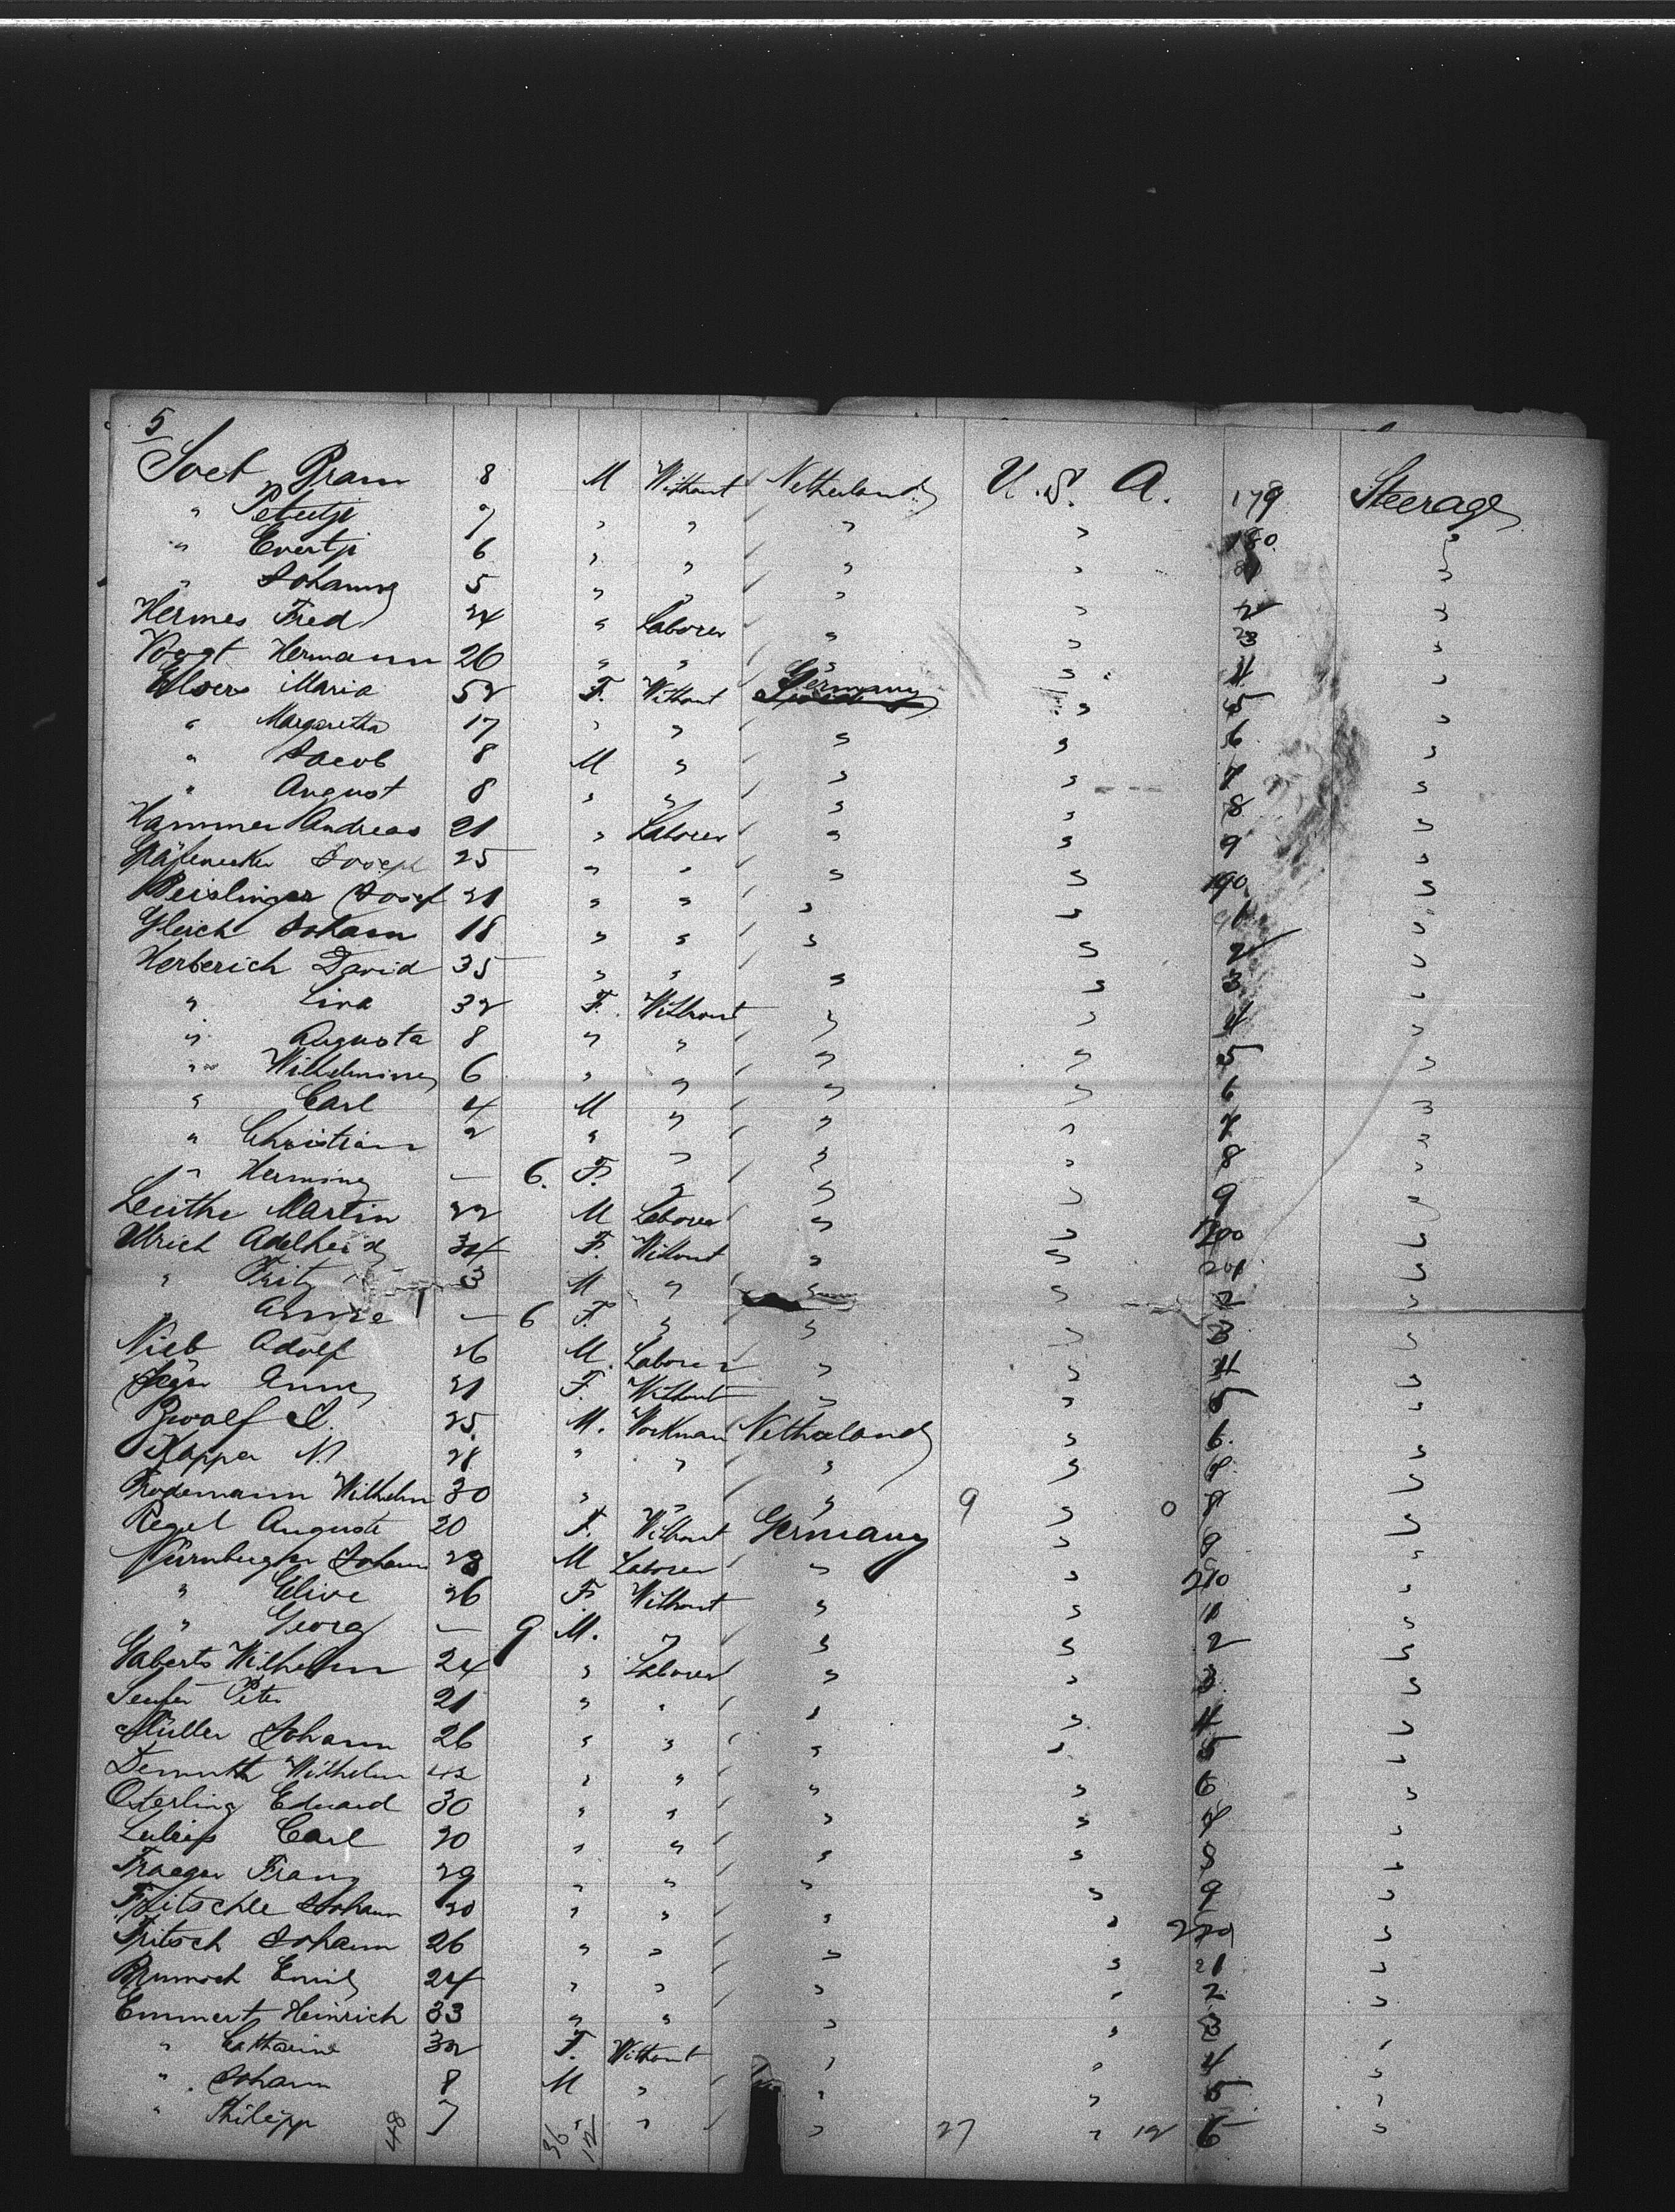 5
Soet Bram 8 M Without Netherlands U. S. A. 179 Steerage
" Petertje 7 " " " " 180 "
" Evertje 6 " " " " 81 "
" Johanna 5 " " " " 2 "
Hermes Fred 24 " Laborer " " 83 "
Voogt Hermann 26 " " " " 4 "
Elvers Maria 52 F. Without Germany " 5 "
" Margaretha 17 " " " " 6 "
" Jacob 8 M " " " 7 "
" August 8 " " " " 8 "
Hammer Andreas 21 " Laborer " " 9 "
Joseph 25 " " " " 190 "
Beislinger Josef 21 " " " " 91 "
Gleich Johann 18 " " " " 2 "
Herberich David 35 " " " " 3 "
" Lina 32 F. Without " " 4 "
" Augusta 8 " " " " 5 "
" Wilhelmine 6 " " " " 6 "
" Carl 4 M " " " 7 "
" Christian 2 " " " " 8 "
" Hermine — 6. F. " " " 9 "
Leuthe Martin 22 M Laborer " " 200 "
Ulrich Adelheid 34 F. Without " " 201 "
" Fritz 3 M " " " 2 "
Anna — 6 F. " " " 3 "
Nieb Adolf 26 M. Laborer " " 4 "
Anna 21 F. Without " " 5 "
Zwalf I. 25 M. Workman Netherland " 6. "
Kapper N. 28 " " " " 7 "
Rodemann Wilhelm 30 " " " 9 " 0 8 "
Regel Auguste 20 F. Without Germany " 9 "
Nürnberger Johann 28 M Laborer " " 210 "
" Elise 26 F. Without " " 11 "
" Georg — 9 M. " " " 2 "
Gaberts Wilhelm 24 " Laborer " " 3 "
Peter 21 " " " " 4 "
Müller Johann 26 " " " " 5 "
Demuth Wilhelm 42 " " " " 6 "
Osterling Eduard 30 " " " " 7 "
Carl 20 " " " " 8 "
Traeger Franz 29 " " " " 9 "
Fritschle Johann 20 " " " " 220 "
Fritsch Johann 26 " " " " 21 "
Emil 24 " " " " 2 "
Emmert Heinrich 33 " " " " 3 "
" Catharine 32 F. Without " " 4 "
" Johann 8 M " " " 5 "
" Philipp 48 7 36 12 " " " 27 " 12 6 "